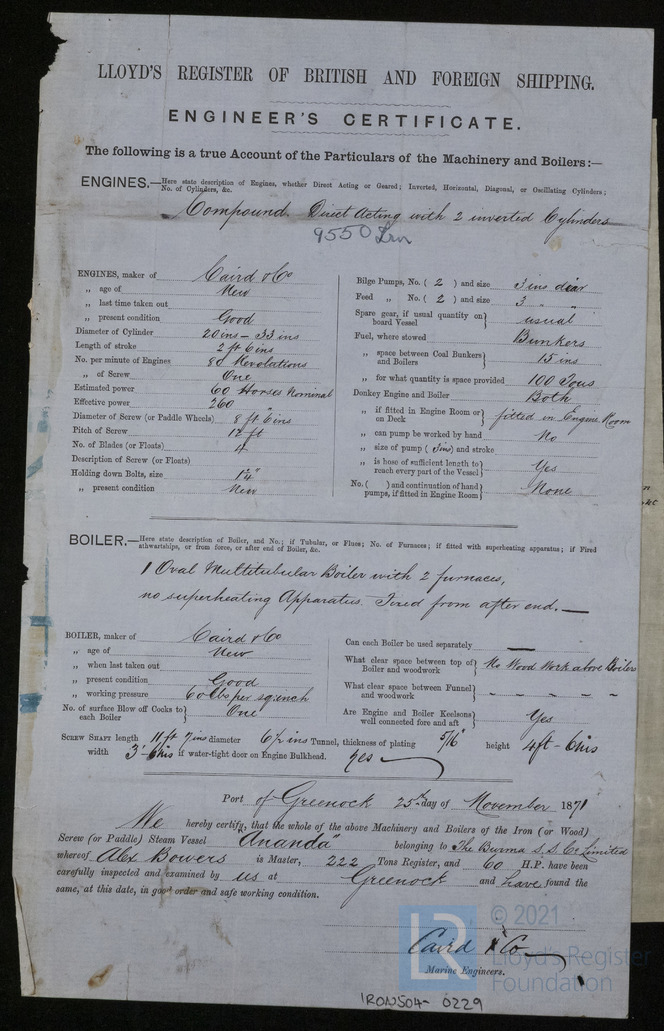 LLOYD'S REGISTER OF BRITISH AND FOREIGN SHIPPING.
ENGINEER'S CERTIFICATE.
The following is a true Account of the Particulars of the Machinery and Boilers:—
ENGINES.—Here state description of Engines, whether Direct Acting or Geared; Inverted, Horizontal, Diagonal, or Oscillating Cylinders;
No. of Cylinders, &c.
Compound. Direct Acting with 2 inverted Cylinders
9550 Irn
ENGINES, maker of Caird & Co
„ age of New
„ last time taken out
„ present condition Good
Diameter of Cylinder 20 ins – 33 ins
Length of stroke 2 ft 6 ins
No. per minute of Engines 80 Revolutions
„ of Screw One
Estimated power 60 Horses Nominal
Effective power 260 „
Diameter of Screw (or Paddle Wheels) 8 ft 6 ins
Pitch of Screw 12 ft
No. of Blades (or Floats) 4
Description of Screw (or Floats)
Holding down Bolts, size 1¼"
„ present condition New
Bilge Pumps, No. ( 2 ) and size 3 ins diar
Feed „ No. ( 2 ) and size 3 „ „
Spare gear, if usual quantity on
board Vessel } usual
Fuel, where stowed Bunkers
„ space between Coal Bunkers
and Boilers } 15 ins
„ for what quantity is space provided 100 Tons
Donkey Engine and Boiler Both
„ if fitted in Engine Room or
on Deck } fitted in Engine Room
„ can pump be worked by hand No
„ size of pump ( 3ins ) and stroke
„ is hose of sufficient length to
reach every part of the Vessel } Yes
No. ( ) and continuation of hand
pumps, if fitted in Engine Room } None
BOILER.—Here state description of Boiler, and No.; if Tubular, or Flues; No. of Furnaces; if fitted with superheating apparatus; if Fired
athwartships, or from force, or after end of Boiler, &c.
1 Oval Multitubular Boiler with 2 furnaces,
no superheating Apparatus. Fired from after end.—
BOILER, maker of Caird & Co
„ age of New
„ when last taken out
„ present condition Good
„ working pressure 60 lbs per sq. inch
No. of surface Blow off Cocks to
each Boiler } One
Can each Boiler be used separately —
What clear space between top of
Boiler and woodwork } No Wood Work above Boiler
What clear space between Funnel
and woodwork } – – – – –
Are Engine and Boiler Keelsons
well connected fore and aft } Yes
SCREW SHAFT length 11 ft 7 ins diameter 6½ ins Tunnel, thickness of plating 5/16" height 4ft - 6ins
width 3'- 6ins if water-tight door on Engine Bulkhead. Yes
Port of Greenock 25th day of November 1871
We hereby certify, that the whole of the above Machinery and Boilers of the Iron (or Wood)
Screw (or Paddle) Steam Vessel "Ananda" belonging to The Burma S. S. Co Limited
whereof Alex Bowers is Master, 222 Tons Register, and 60 H.P. have been
carefully inspected and examined by us at Greenock and have found the
same, at this date, in good order and safe working condition.
Caird & Co
Marine Engineers.
LR © 2021
Lloyd's Register
Foundation
IRON504- 0229